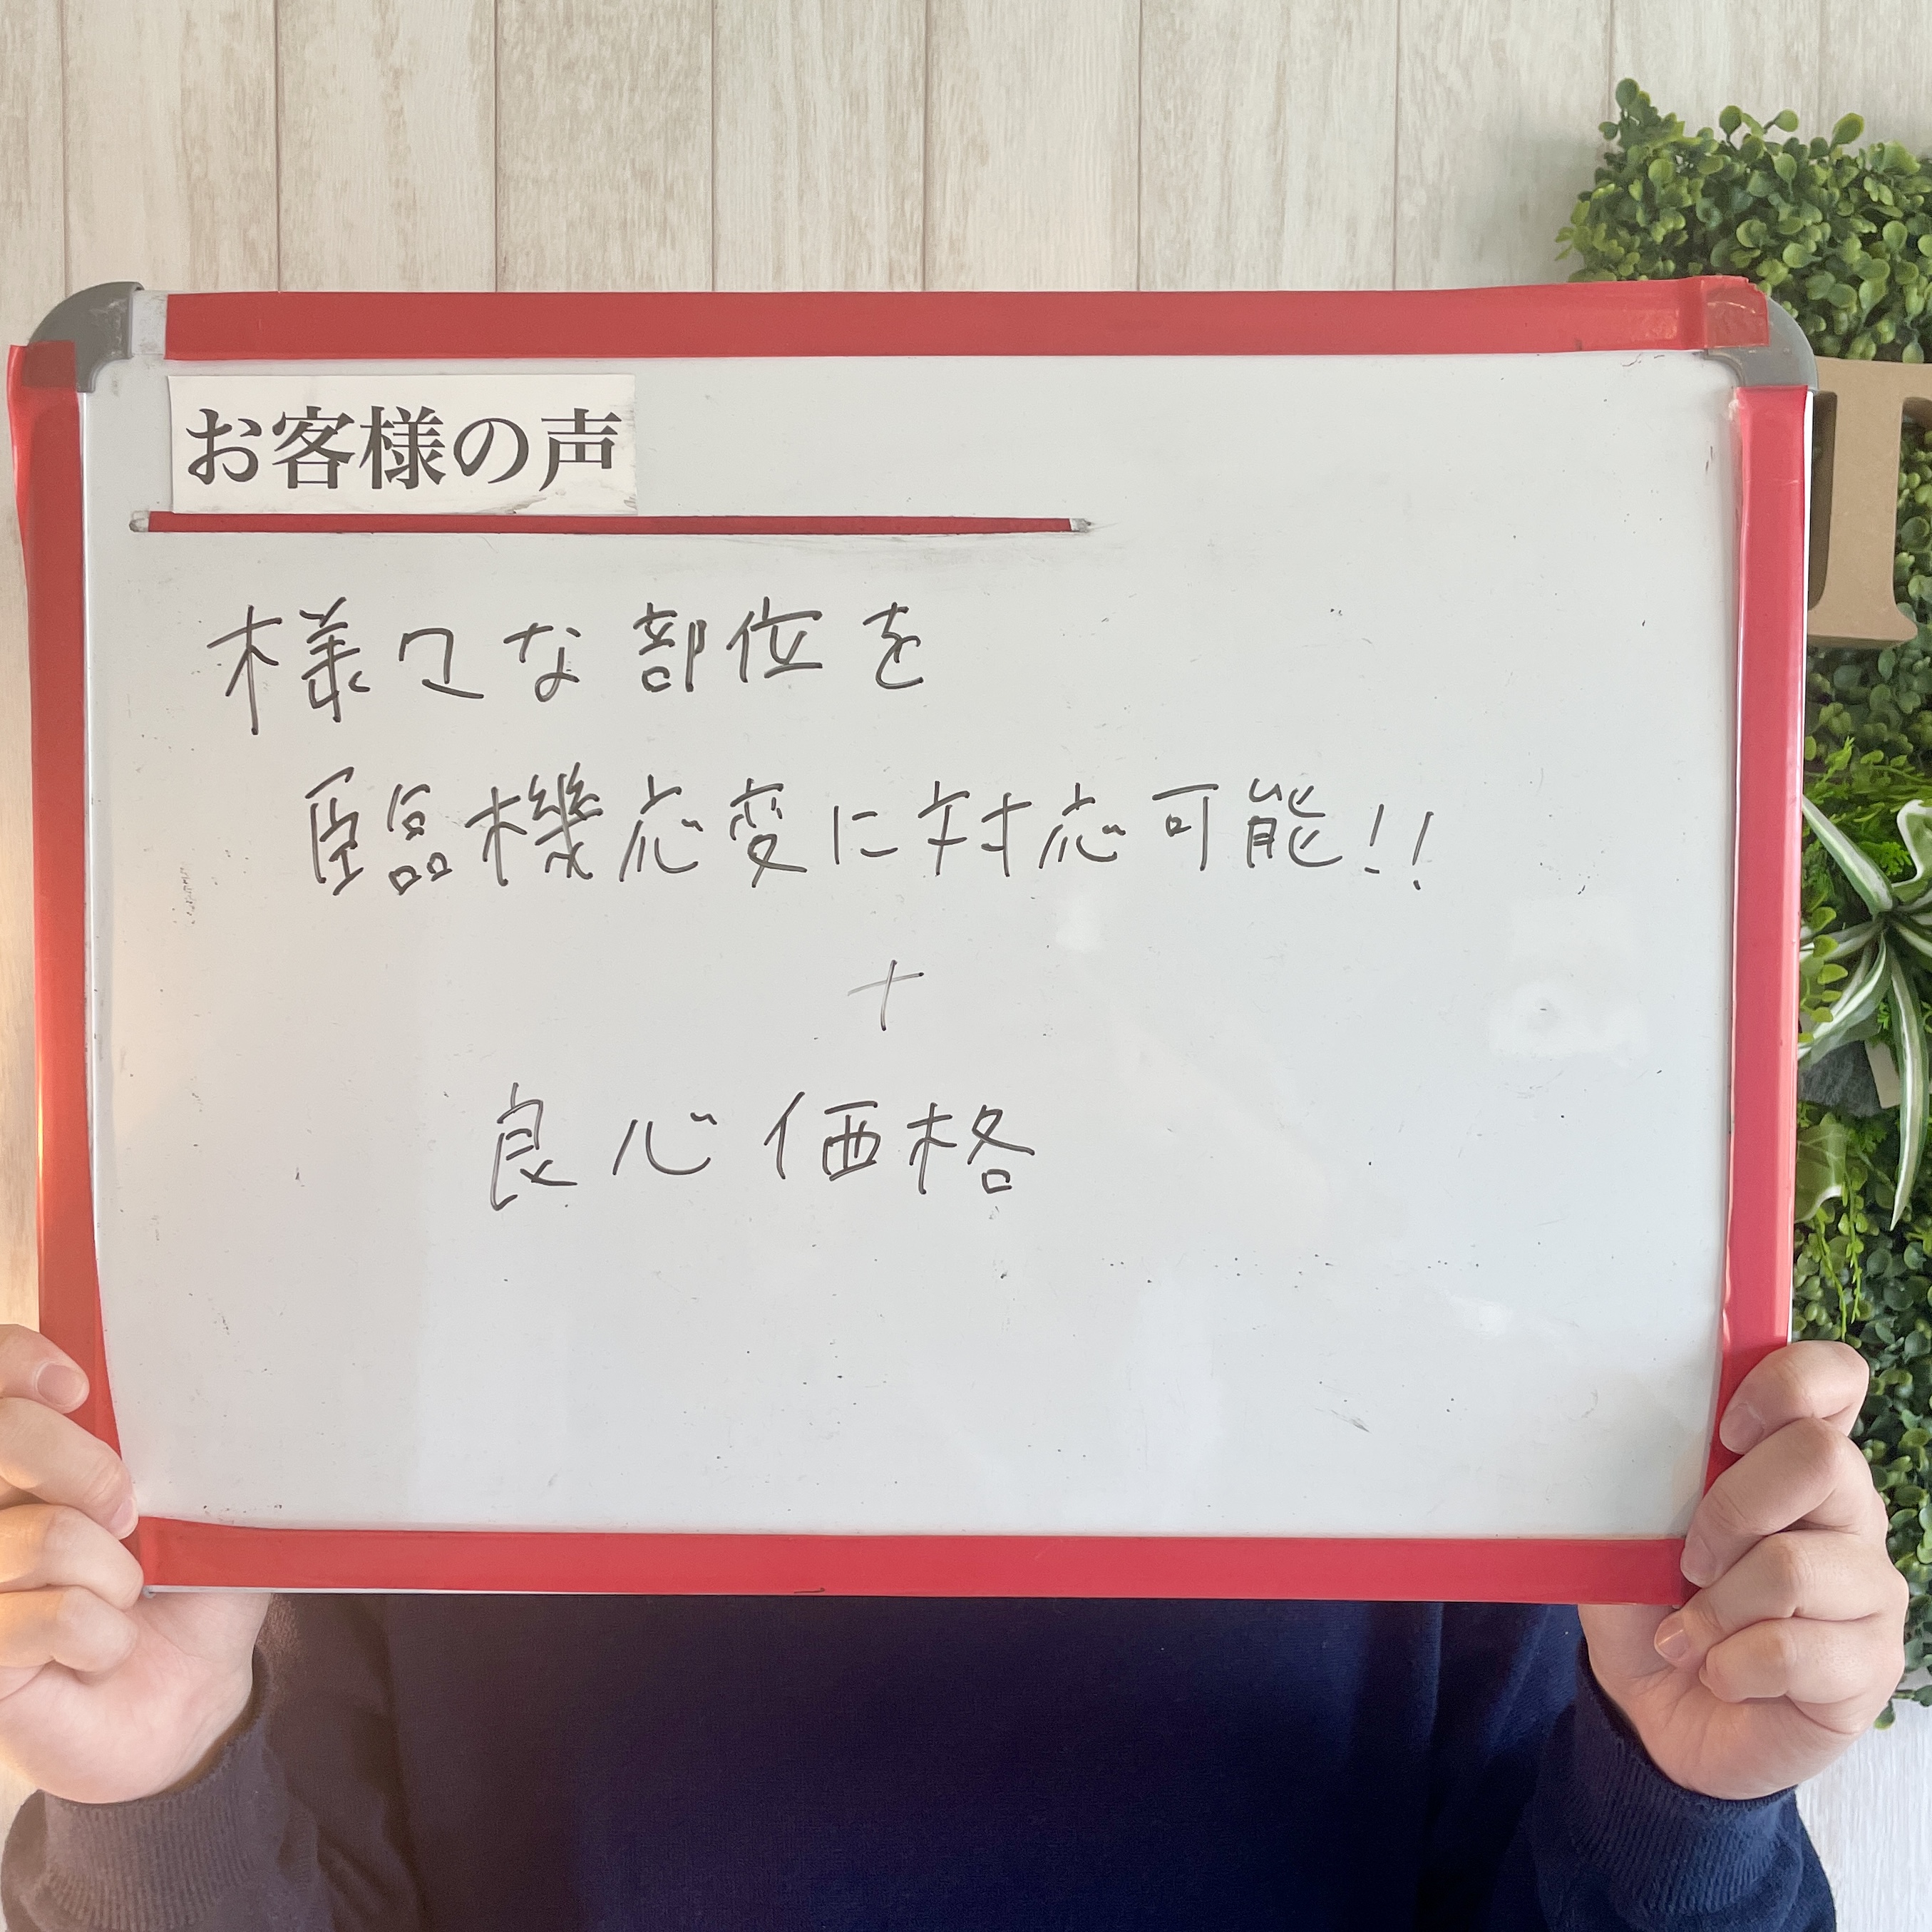 お客様の声
様々な部位を
臨機応変に対応可能!!
+
良心価格
I